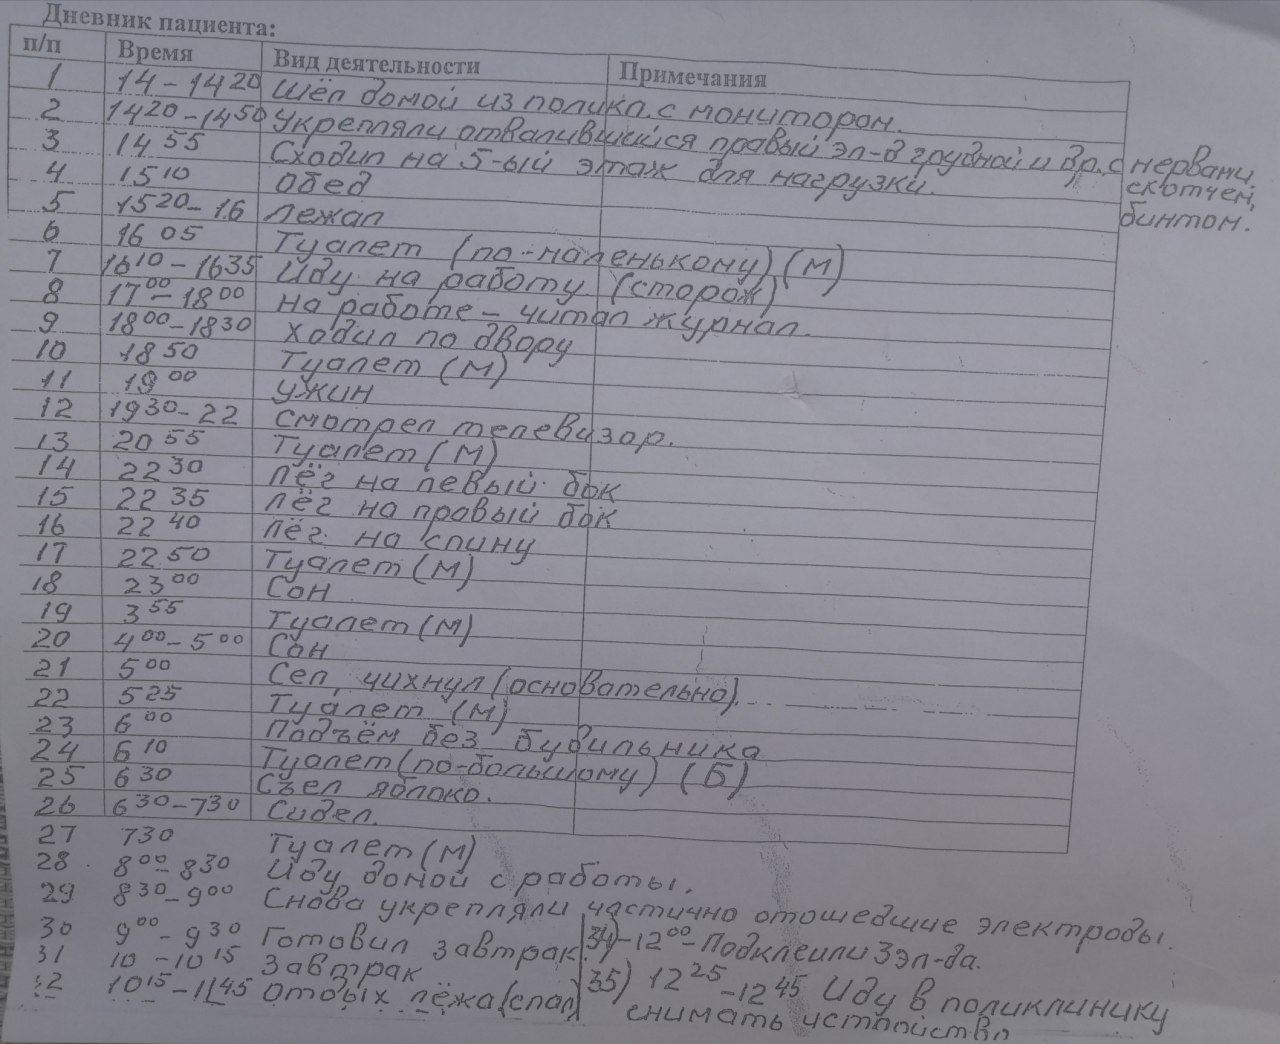 Дневник пациента:
п/п Время Вид деятельности Примечания
1 14 - 14 20 Шёл домой из поликл. с монитором.
2 14 20 - 14 50 Укрепляли отвалившийся правый эл-д грудной и др. с нервами, скотчем, бинтом.
3 14 55 Сходил на 5-ый этаж для нагрузки.
4 15 10 Обед
5 15 20 - 16 Лежал
6 16 05 Туалет (по-маленькому) (М)
7 16 10 - 16 35 Иду на работу (сторож)
8 17 00 - 18 00 на работе - читал журнал.
9 18 00 - 18 30 ходил по двору
10 18 50 Туалет (М)
11 19 00 ужин
12 19 30 - 22 смотрел телевизор.
13 20 55 Туалет (М)
14 22 30 лёг на левый бок
15 22 35 лёг на правый бок
16 22 40 лёг на спину
17 22 50 Туалет (М)
18 23 00 Сон
19 3 55 Туалет (М)
20 4 00 - 5 00 Сон
21 5 00 Сел, чихнул (основательно).
22 5 25 Туалет (М)
23 6 00 Подъём без будильника
24 6 10 Туалет (по-большому) (Б)
25 6 30 Съел яблоко.
26 6 30 - 7 30 Сидел.
27 7 30 Туалет (М)
28 8 00 - 8 30 Иду домой с работы.
29 8 30 - 9 00 Снова укрепляли частично отошедшие электроды.
30 9 00 - 9 30 Готовил завтрак.
31 10 - 10 15 завтрак
32 10 15 - 11 45 отдых лёжа (спал)
34) - 12 00 - Подклеили 3 эл-да.
35) 12 25 - 12 45 Иду в поликлинику
снимать устройство